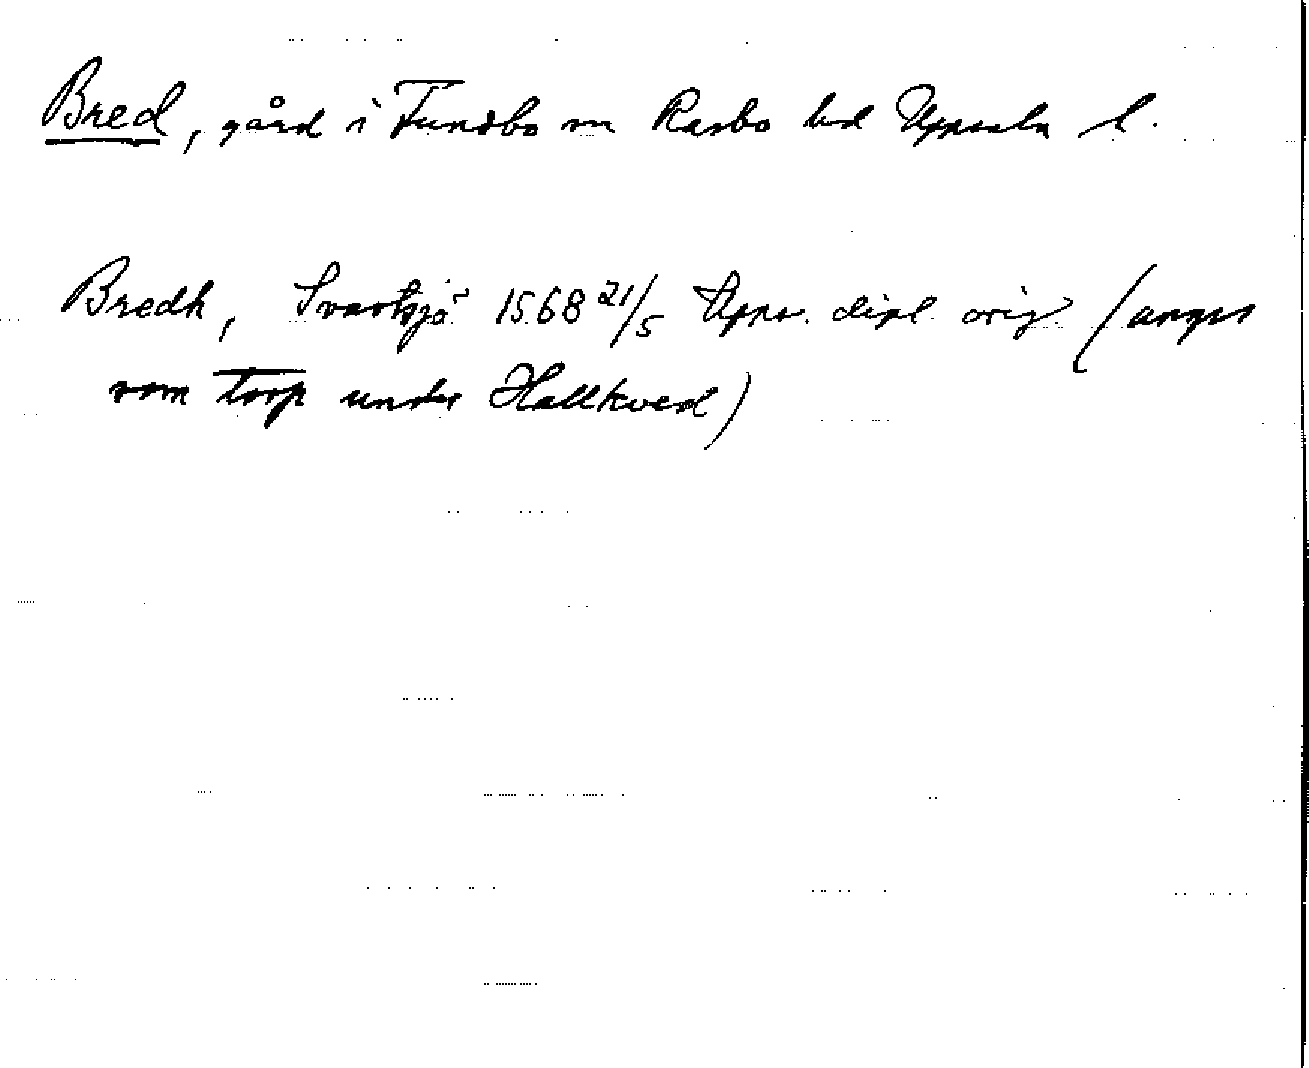 Bred, gård i Funbo sn Rasbo hd Uppsala l.
Bredh, Svartsjö 1568 21/5 Upps. dipl. orig. (anges
som torp under Hallkved)